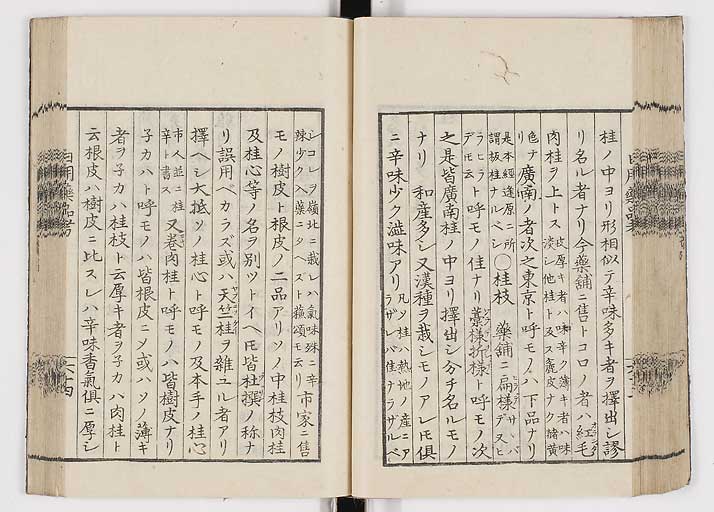 桂ノ中ヨリ形相似テ辛味多キ者ヲ擇出シ謬
リ名ル者ナリ今藥舗ニ售トコロノ者ハ紅毛
肉桂ヲ上トス 皮厚キ者ハ味辛ク薄キ者ハ味
淡シ他桂ト及ス麁皮ナク 黄
色ナリ 廣南ノ者次之東京ト呼モノハ下品ナリ
是本經逢原ニ所
謂板桂ナルベシ ○桂枝 藥舗ニ扁様デサヽバ
デヌヒ
ラヒラト呼モノ佳ナリ藁様折様ト呼モノ次
デモ云
之是皆廣南桂ノ中ヨリ擇出シ分チ名ルモノ
ナリ 和産多シ又漢種ヲ栽シモノアレ𪜈俱
ニ辛味少ク澁味アリ 凡ソ桂ハ熱地ノ産ニア
ラザレバ佳ナラザルベ
シコレヲ嶺北ニ栽レハ氣味殊ニ辛
辣少ク入藥ニタヘズト蘇頌モ云リ 市家ニ售
モノ樹皮ト根皮ノ二品アリソノ中桂枝肉桂
及桂心等ノ名ヲ別ツトイヘ𪜈皆杜撰ノ称ナ
リ誤用ベカラズ或ハ天竺桂ヲ雑ユル者アリ
擇ヘシ大抵ソノ桂心ト呼モノ及本手ノ桂心
市人並ニ桂
辛ト書ス 又卷肉桂ト呼モノハ皆樹皮ナリ
子カハト呼モノハ皆根皮ニメ或ハソノ薄キ
者ヲ子カハ桂枝ト云厚キ者ヲ子カハ肉桂ト
云根皮ハ樹皮ニ比スレハ辛味香氣俱ニ厚シ